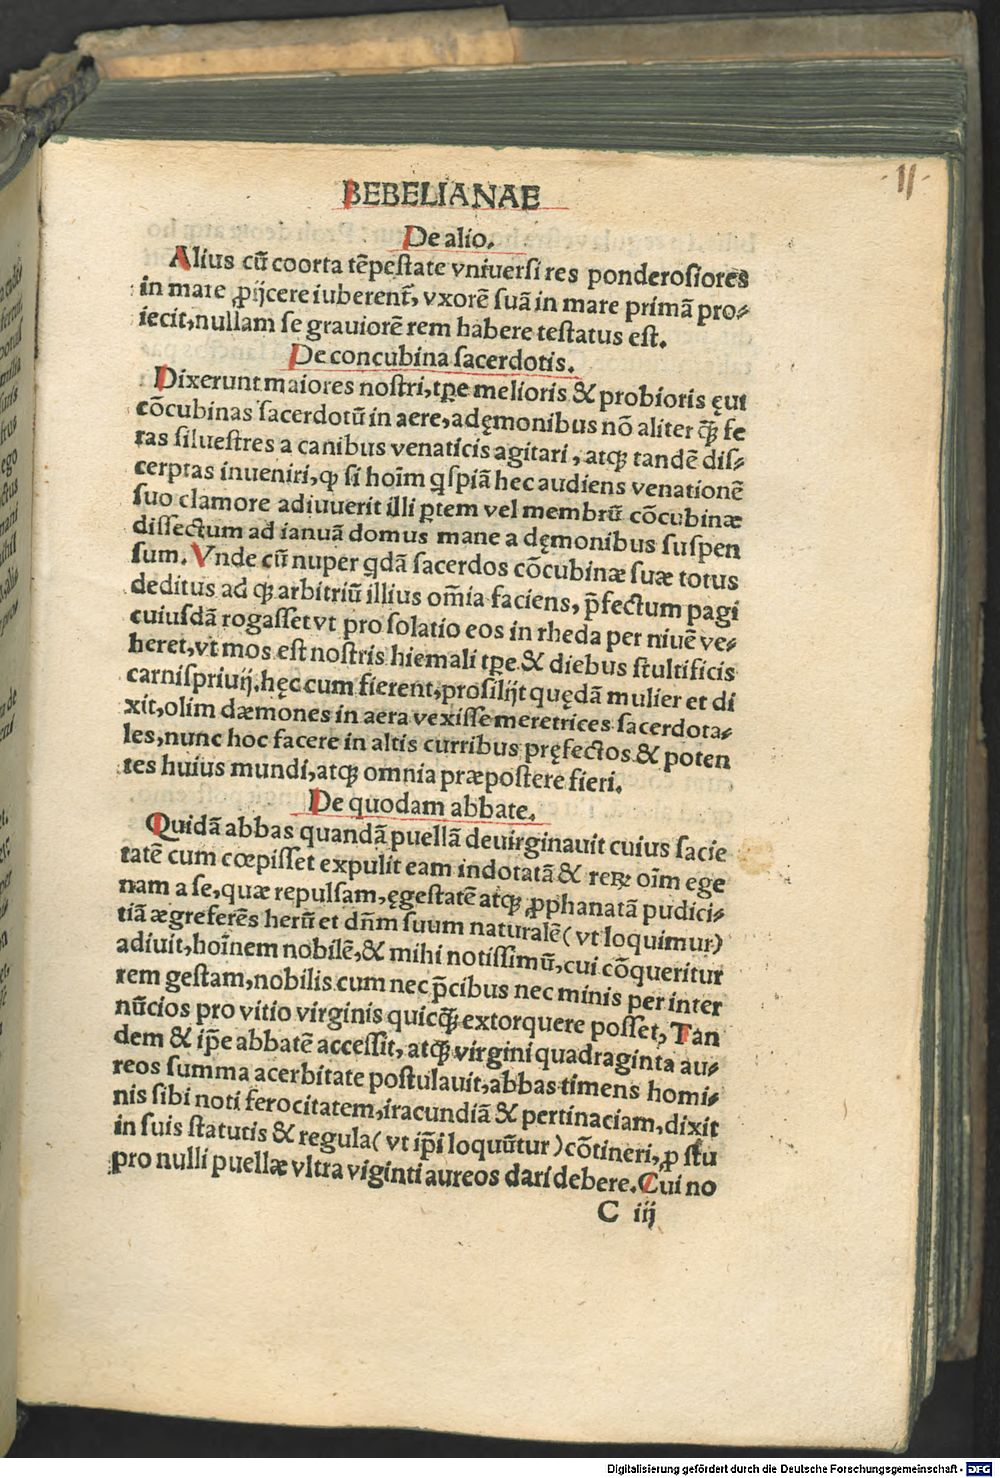 11
BEBELIANAE
De alio.
Alius cū coorta tēpestate vniuersi res ponderosiores
in mare ꝓijcere iuberent̃, vxorē suā in mare primā pro⸗
iecit, nullam se grauiorē rem habere testatus est.
De concubina sacerdotis.
Dixerunt maiores nostri, tꝑe melioris & probioris ęui
cōcubinas sacerdotū in aere, a dęmonibus nō aliter ꝙ̄ fe
ras siluestres a canibus venaticis agitari, atqꝫ tandē dis⸗
cerptas inueniri, ꝙ si hoīm qͥspiā hec audiens venationē
suo clamore adiuuerit illi ꝑtem vel membrū cōcubinæ
dissectum ad ianuā domus mane a dęmonibus suspen
sum. Vnde cū nuper qͥdā sacerdos cōcubinæ suæ totus
deditus ad qꝫ arbitriū illius om̄ia faciens, p̄fectum pagi
cuiusdā rogasset vt pro solatio eos in rheda per niuē ve⸗
heret, vt mos est nostris hiemali tꝑe & diebus stultificis
carnispriuij. hęc cum fierent, prosilijt quędā mulier et di
xit, olim dæmones in aera vexisse meretrices sacerdota⸗
les, nunc hoc facere in altis curribus pręfectos & poten
tes huius mundi, atqꝫ omnia præpostere fieri.
De quodam abbate.
Quidā abbas quandā puellā deuirginauit cuius sacie
tatē cum cœpisset expulit eam indotatā & reꝝ oīm ege
nam a se, quæ repulsam, ęgestatē atqꝫ ꝓphanatā pudici⸗
tiā ægreferēs herū et dn̄m suum naturalē (vt loquimur)
adiuit, hoīnem nobilē, & mihi notissimū, cui cōqueritur
rem gestam, nobilis cum nec p̄cibus nec minis per inter
nūcios pro vitio virginis quicꝙ̄ extorquere posset, Tan
dem & ip̄e abbatē accessit, atqꝫ virgini quadraginta au⸗
reos summa acerbitate postulauit, abbas timens homi⸗
nis sibi noti ferocitatem, iracundiā & pertinaciam, dixit
in suis statutis & regula (vt ip̄i loquūtur) cōtineri, ꝓ stu
pro nulli puellæ vltra viginti aureos dari debere. Cui no
C iij
Digitalisierung gefördert durch die Deutsche Forschungsgemeinschaft - DFG